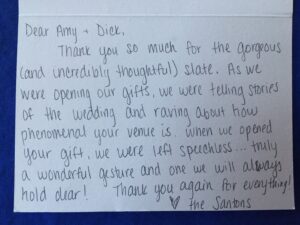 Dear Amy + Dick,
Thank you so much for the gorgeous
(and incredibly thoughtful) slate. As we
were opening our gifts, we were telling stories
of the wedding and raving about how
phenomenal your venue is. When we opened
your gift, we were left speechless... truly
a wonderful gesture and one we will always
hold dear! Thank you again for everything!
♥ the Santons